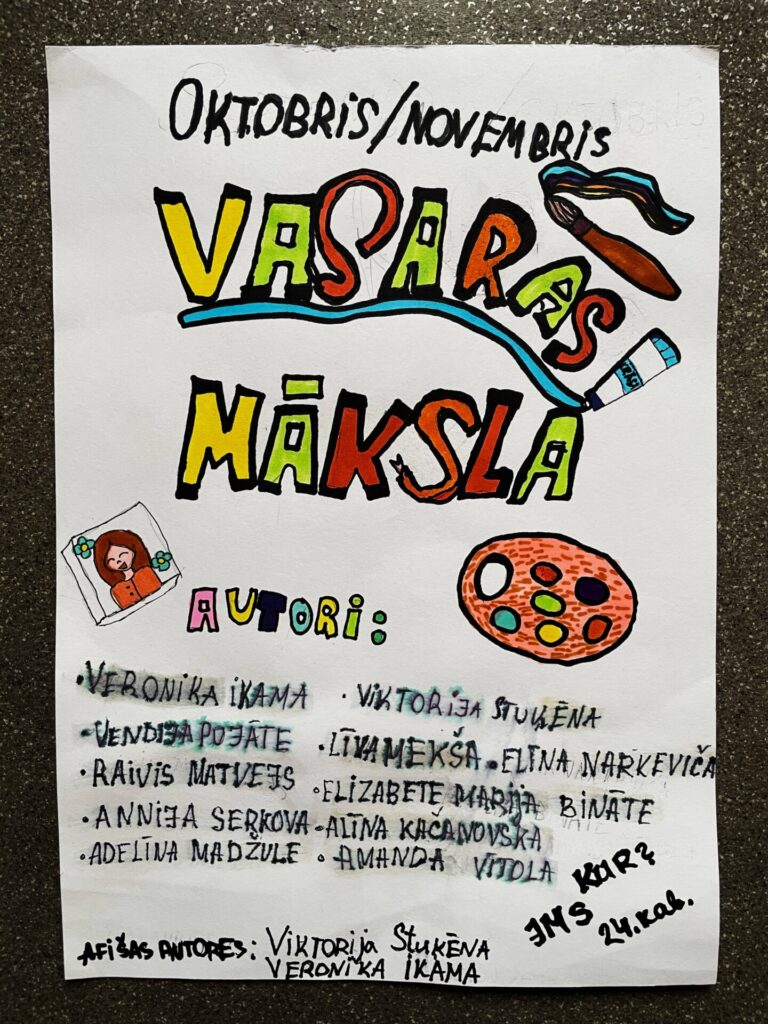 OKTOBRIS/NOVEMBRIS
VASARAS
MĀKSLA
AUTORI:
·VERONIKA IKAMA
·VENDIJA POJĀTE
·RAIVIS MATVEJS
·ANNIJA SERKOVA
·ADELĪNA MADŽULE
·VIKTORIJA STUĶĒNA
·LĪVA MEKŠA ·ELĪNA NARKEVIČA
·ELIZABETE MARIJA BINĀTE
·ALĪNA KAČANOVSKA
·AMANDA VĪTOLA
KUR?
JMS
24.kab.
AFIŠAS AUTORES: Viktorija Stuķēna
VERONIKA IKAMA